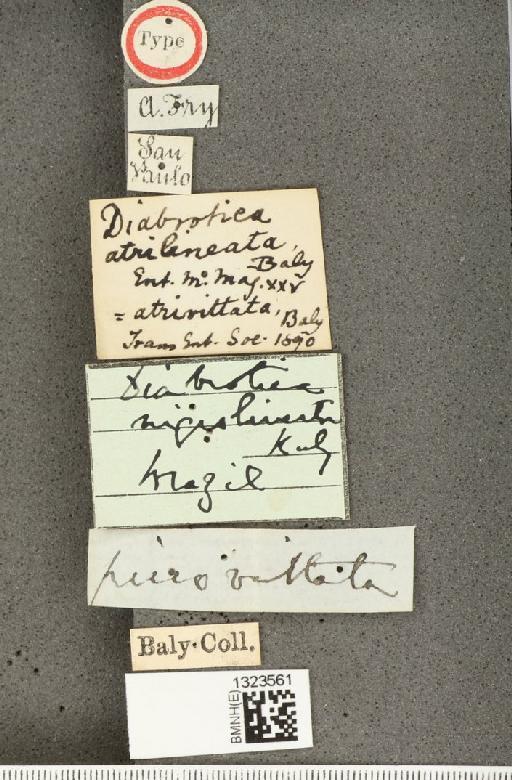 Type
A. Fry
Sau
Paulo
Diabrotica
atrilineata,
Baly
Ent. Mo. Mag. XXV
= atrivittata, Baly
Trans Ent. Soc. 1890
Diabrotica
Baly
Brazil
vittata
Baly·Coll.
1323561
BMNH(E)